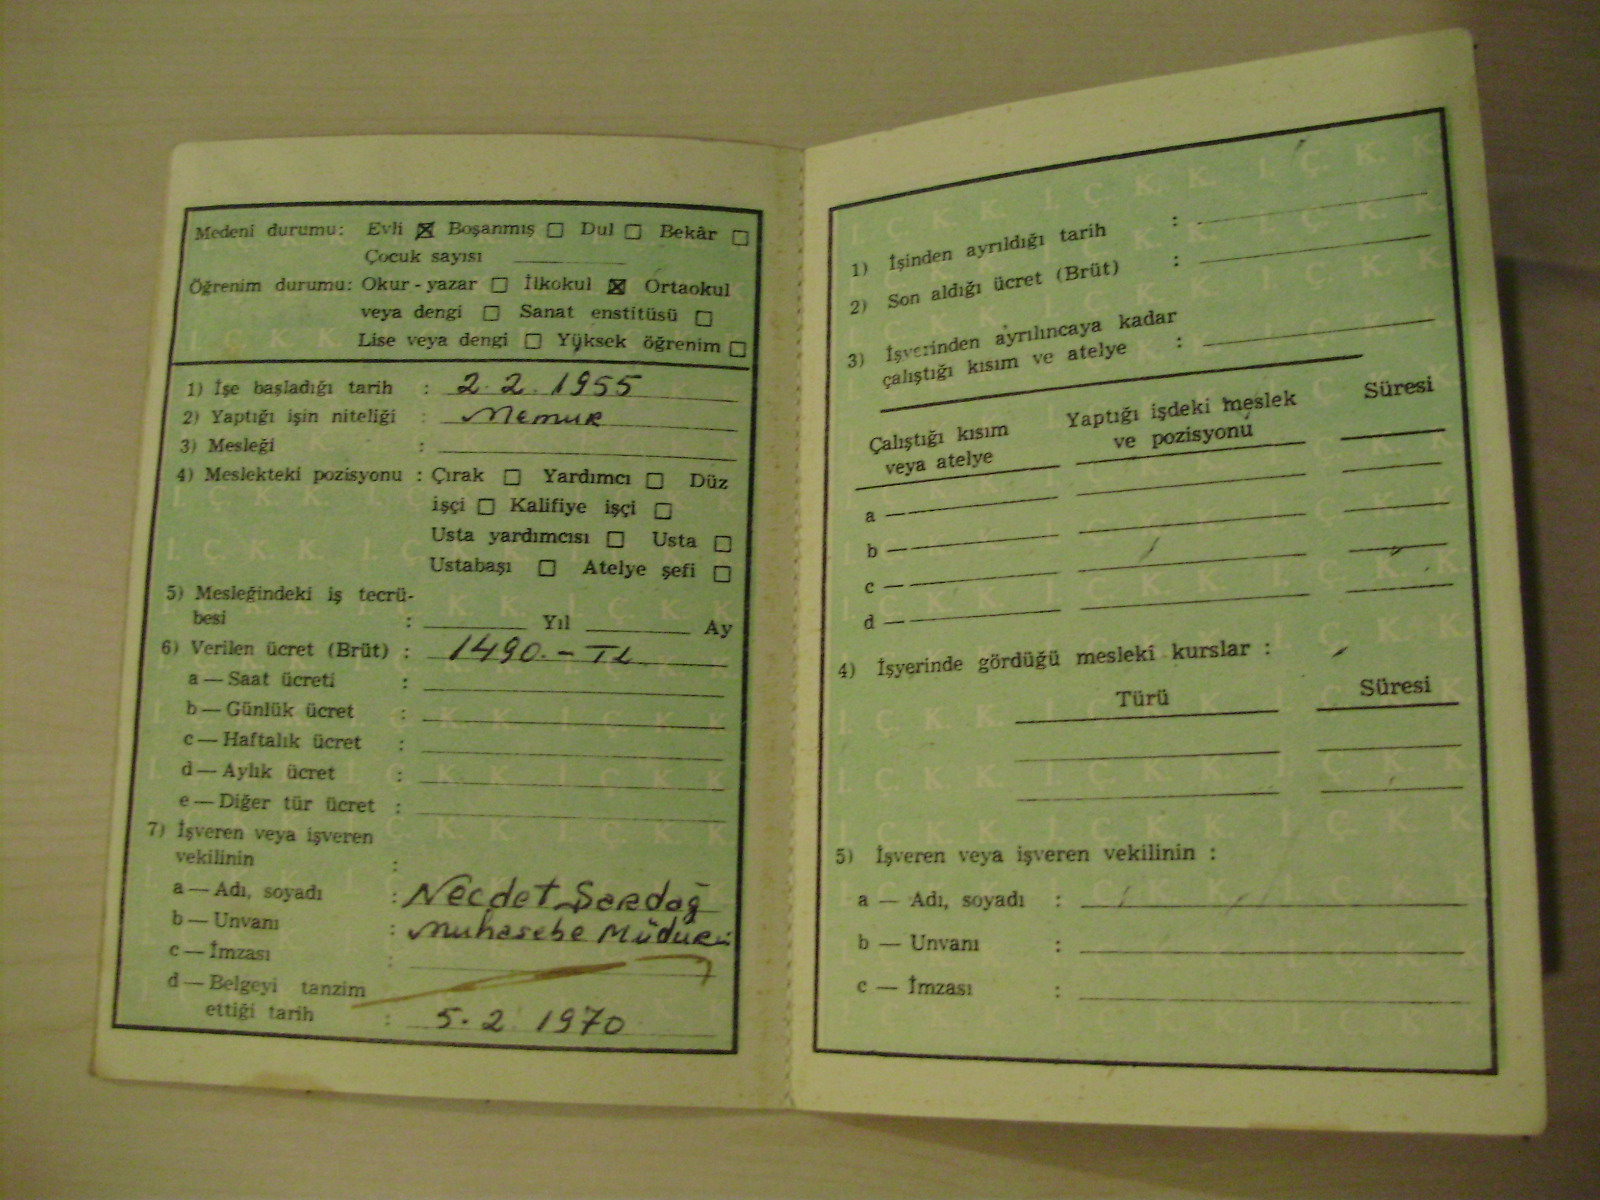 Medenî durumu: Evli ☒ Boşanmış ☐ Dul ☐ Bekâr ☐
Çocuk sayısı
Öğrenim durumu: Okur - yazar ☐ İlkokul ☒ Ortaokul
veya dengi ☐ Sanat enstitüsü ☐
Lise veya dengi ☐ Yüksek öğrenim ☐
1) İşe başladığı tarih : 2.2.1955
2) Yaptığı işin niteliği : Memur
3) Mesleği :
4) Meslekteki pozisyonu : Çırak ☐ Yardımcı ☐ Düz
işçi ☐ Kalifiye işçi ☐
Usta yardımcısı ☐ Usta ☐
Ustabaşı ☐ Atelye şefi ☐
5) Mesleğindeki iş tecrü-
besi : Yıl Ay
6) Verilen ücret (Brüt) : 1490.- TL
a — Saat ücreti :
b — Günlük ücret :
c — Haftalık ücret :
d — Aylık ücret :
e — Diğer tür ücret :
7) İşveren veya işveren
vekilinin :
a — Adı, soyadı : Necdet Serdağ
b — Unvanı : Muhasebe Müdürü
c — İmzası :
d — Belgeyi tanzim
ettiği tarih : 5.2 1970
1) İşinden ayrıldığı tarih :
2) Son aldığı ücret (Brüt) :
3) İşyerinden ayrılıncaya kadar
çalıştığı kısım ve atelye :
Çalıştığı kısım
veya atelye
Yaptığı işdeki meslek
ve pozisyonu
Süresi
a —
b —
c —
d —
4) İşyerinde gördüğü meslekî kurslar :
Türü Süresi
5) İşveren veya işveren vekilinin :
a — Adı, soyadı :
b — Unvanı :
c — İmzası :